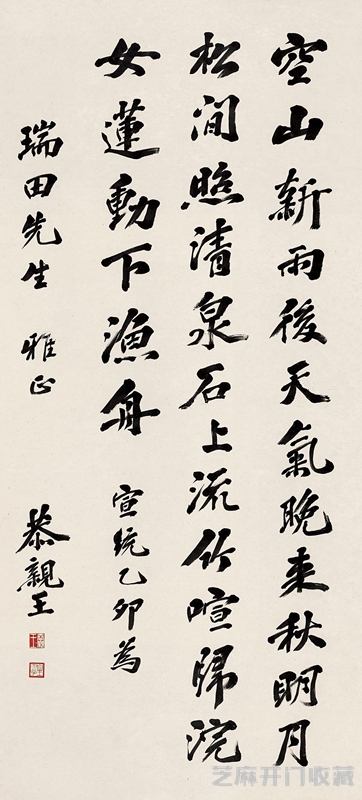 空山新雨後天氣晚來秋明月
松間照清泉石上流竹喧歸浣
女蓮動下漁舟 宣統乙卯為
瑞田先生 雅正 恭親王
芝麻开门收藏